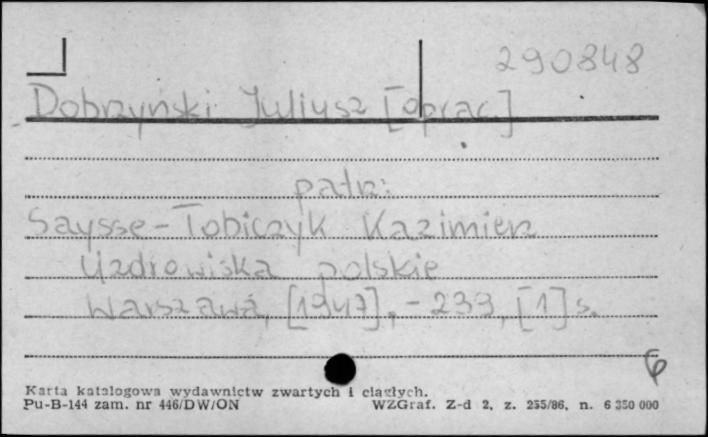 290848
Dobrzyński Juliusz [oprac]
patrz:
Saysse-Tobiczyk Kazimierz
Uzdrowiska polskie
Warszawa, [1947], - 239, [1] s.
6
Karta katalogowa wydawnictw zwartych i ciągłych.
Pu-B-144 zam. nr 446/DW/ON WZGraf. Z-d 2, z. 255/86, n. 6 350 000